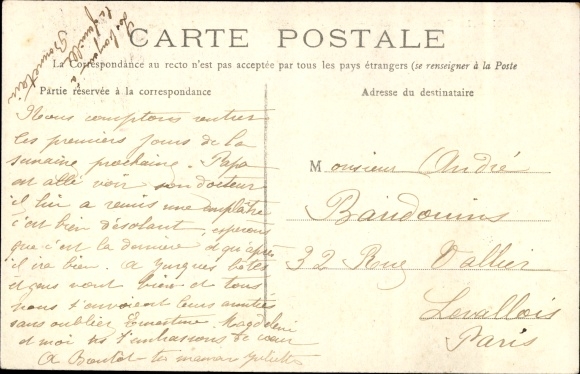 CARTE POSTALE
La Correspondance au recto n'est pas acceptée par tous les pays étrangers (se renseigner à la Poste
Partie réservée à la correspondance
Adresse du destinataire
Nous comptons rentrer
les premiers jours de la
semaine prochaine. Papa
est allé voir son docteur
il lui a remis une emplâtre
c'est bien désolant, espérons
que c'est la dernière et qu'après
il ira bien. A bêtes
et gens vont bien et tous
nous t'envoient leurs amitiés
sans oublier Ernestine, Magdeleine
et moi ns t'embrassons de cœur
ta Juliette
Monsieur André
Baudouins
32 Rue Vallier
Levallois
Paris